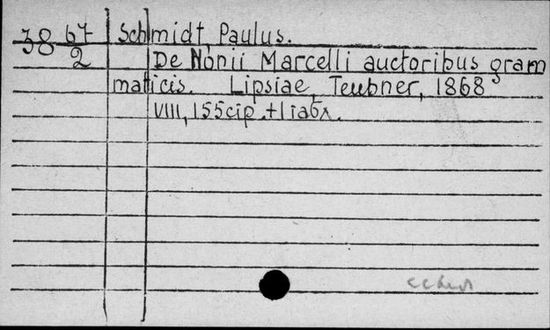 38 67/2 Schmidt Paulus.
De Nonii Marcelli auctoribus gram
maticis. Lipsiae, Teubner, 1868
VIII, 155 cip.+1